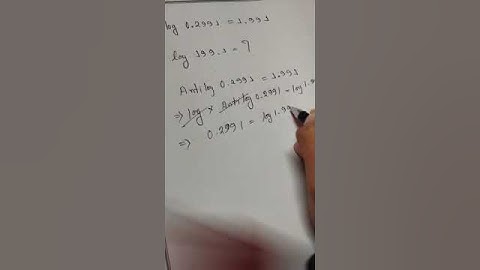 log 0.2991 = 1.991
log 199.1 = ?
Antilog 0.2991 = 1.991
⇒ log × Antilog 0.2991 = log 1.9
⇒ 0.2991 = log 1.99